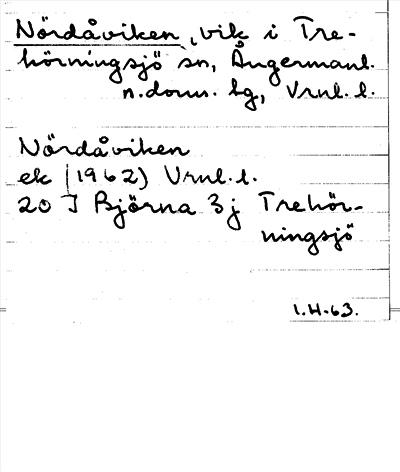 Nördåviken, vik i Tre-
hörningsjö sn, Ångermanl.
n.dom. hg, Vrnl. l.
Nördåviken
ek (1962) Vrnl. l.
20 I Björna 3j Trehör-
ningsjö
1.H.63.